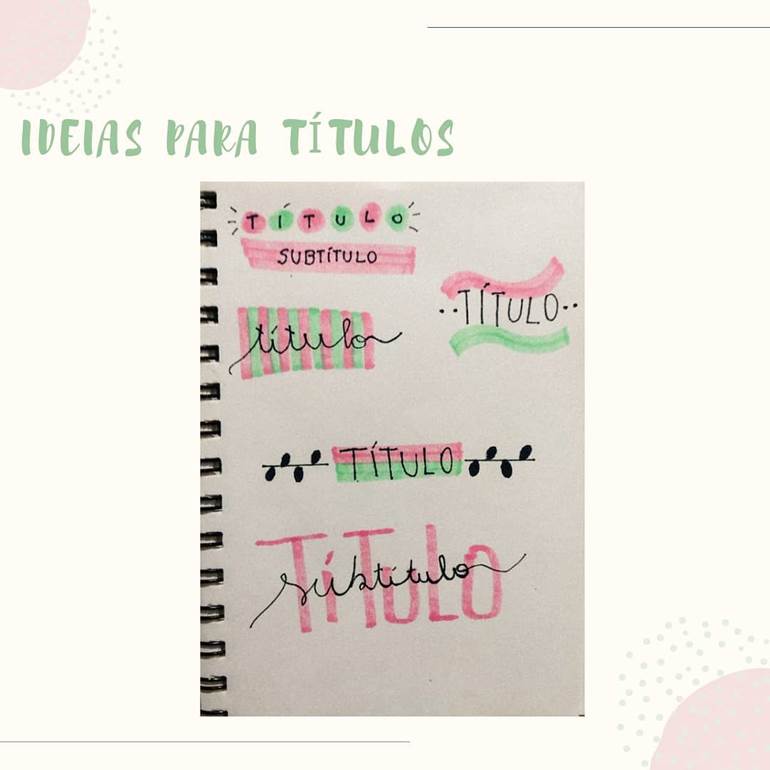 IDEIAS PARA TÍTULOS
TÍTULO
SUBTÍTULO
TÍTULO
título
TÍTULO
TÍTULO
subtítulo